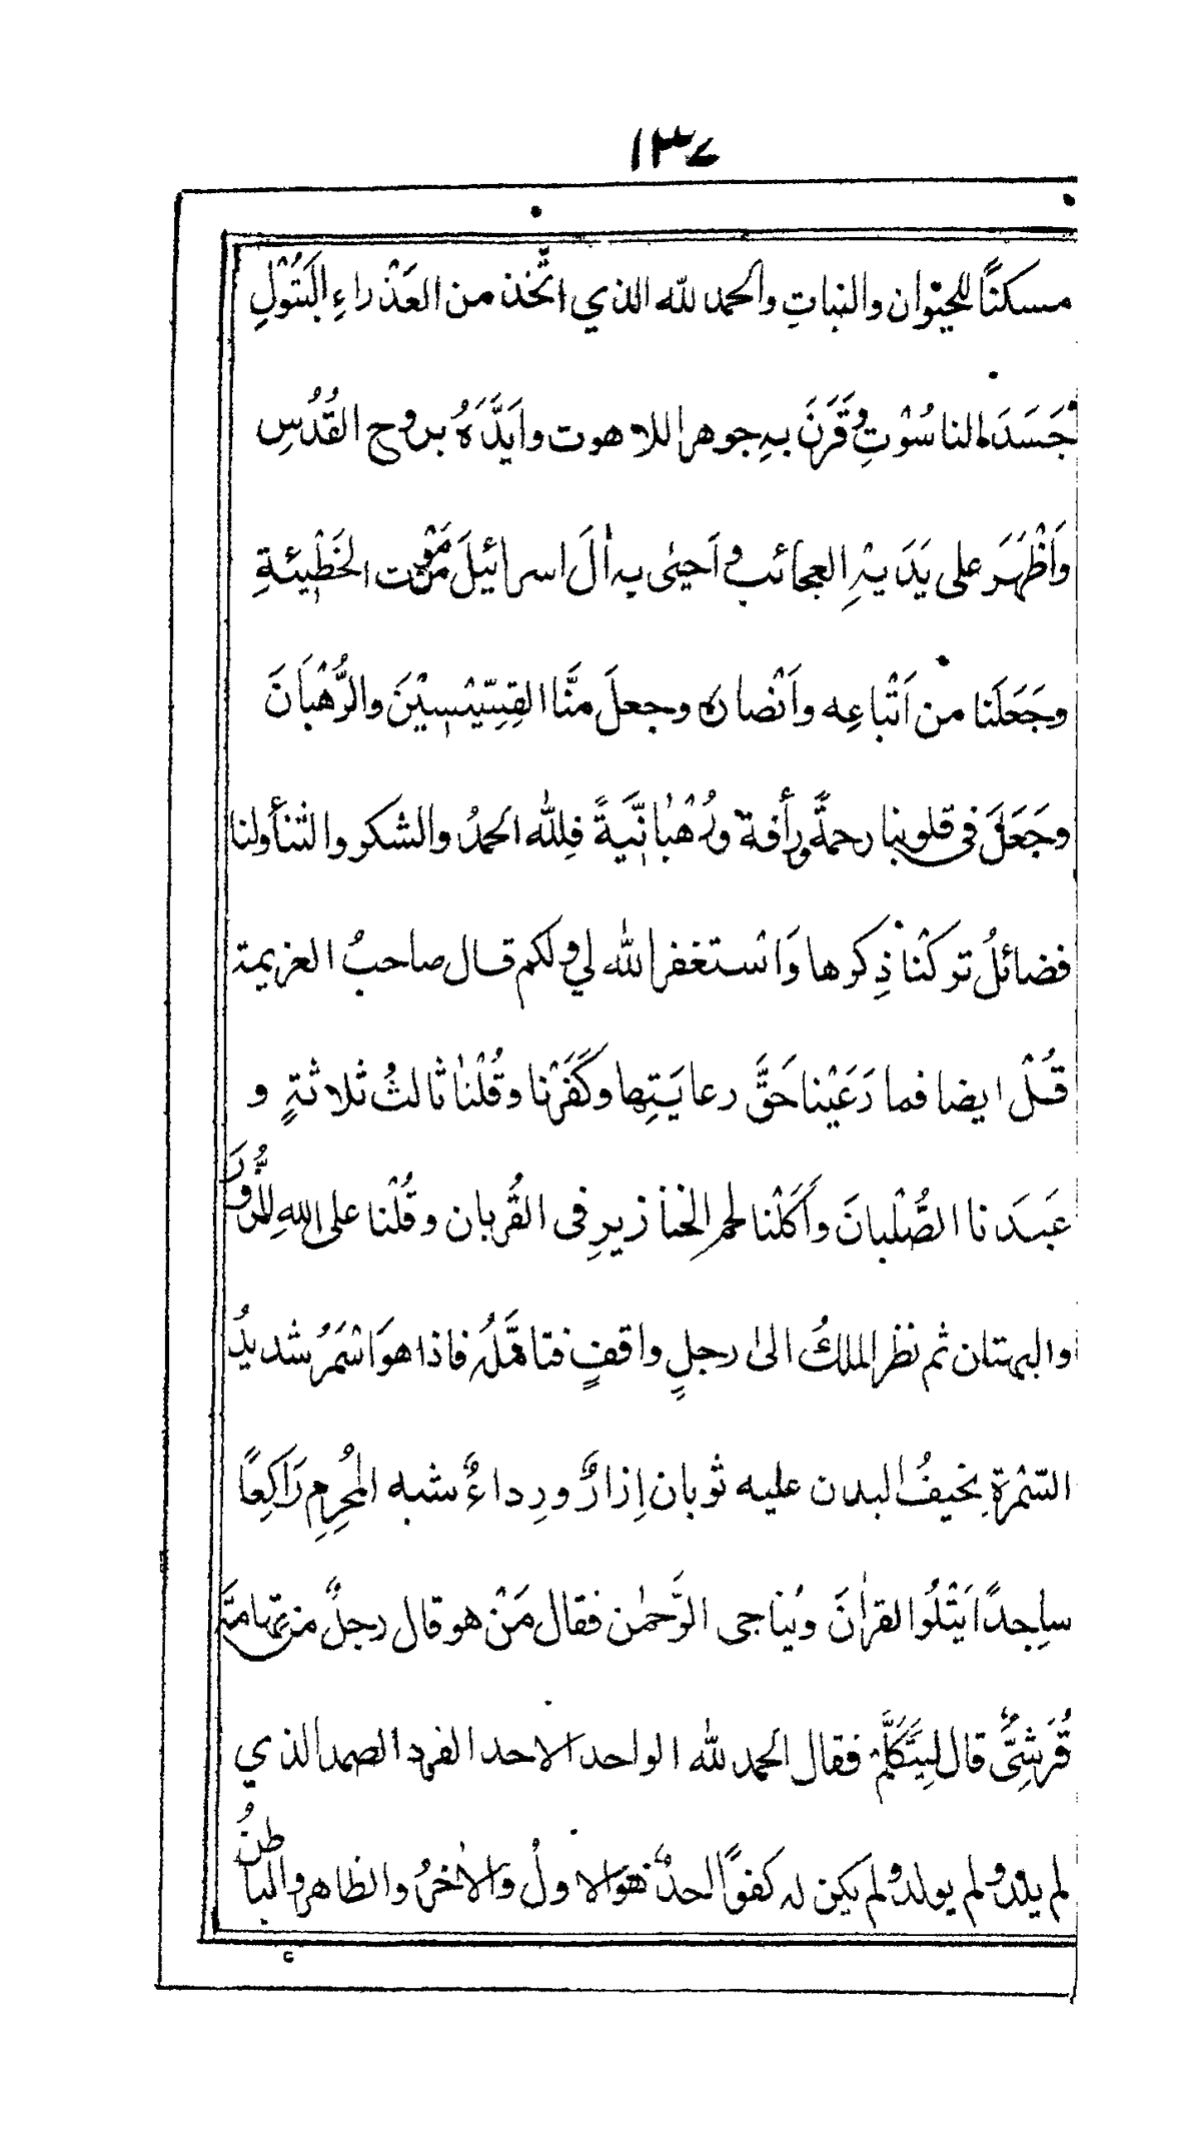 ١٣٧
مسكنًا للحيْوان والنباتِ والحمد لله الذي اتَّخذ من العَذْراءِ البَتُوْلِ
جَسَدَ الناسُوْتِ وقَرَنَ بہٖ جوهر اللاهوت وايَدَّهُ بروح القُدُسِ
وَاَظْهَرَ على يَدَيْہِ العجائب و اَحيٰى بہ اٰلَ اسرائيلَ مِنْ مَوْت الخَطْيئۃِ
وجَعَلَنا من اَتْباعِه واَنْصاره وجعلَ منَّا القِسِّيْسِيْنَ والرُّهْبانَ
وجَعَلَ فى قلوبنا رحمةً ورأفة ورُهْبانِيَّةً فلِلّٰه الحمدُ والشكر والثنأ ولنا
فضائلُ تركْنا ذِكرها وَاسْتغفر الله لي ولكم قال صاحبُ العزيمة
قُلْ ايضا فما رَعَيْنا حَقَّ رعايَتِها وكَفَرْنا وقُلْنا ثالثُ ثلاثةٍ و
عَبَدَنا الصُّلْبانَ وأَكَلْنا لحم الخنازيرِ فى القُربان وقُلْنا على اللهِ الزُّورَ
والبهتان ثم نظر الملكُ الىٰ رجلٍ واقفٍ فتامَّلَہُ فاذا هوَاسْمَرُ شديدُ
السّمْرةِ نحيفُ البدن عليه ثوبان اِزارٌ ورِداءٌ شبه المُحْرِمِ رَاكِعًا
ساجِدًا يَتْلُوا القراٰنَ ويُناجى الرَّحمٰن فقال مَنْ هو قال رجلٌ من تِهامَۃَ
قُرَشِىٌّ قال لِيَتَكَلَّمْ فقال الحمد لله الواحد الاحد الفرد الصمد الذي
لم يلد ولم يولد ولم يكن لہ كفوًا احدٌ هوَ الاولُ والاٰخرُ والظاهر والباطنُ